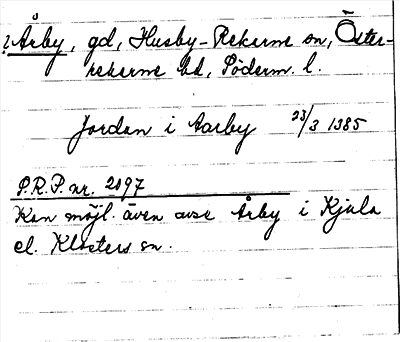 ? Årby, gd, Husby-Rekarne sn, Öster-
rekarne hd, Söderm. l.
Jordan i Aarby 23/3 1385
P.R.P. nr. 2097
Kan möjl. även avse Årby i Kjula
el. Klosters sn.